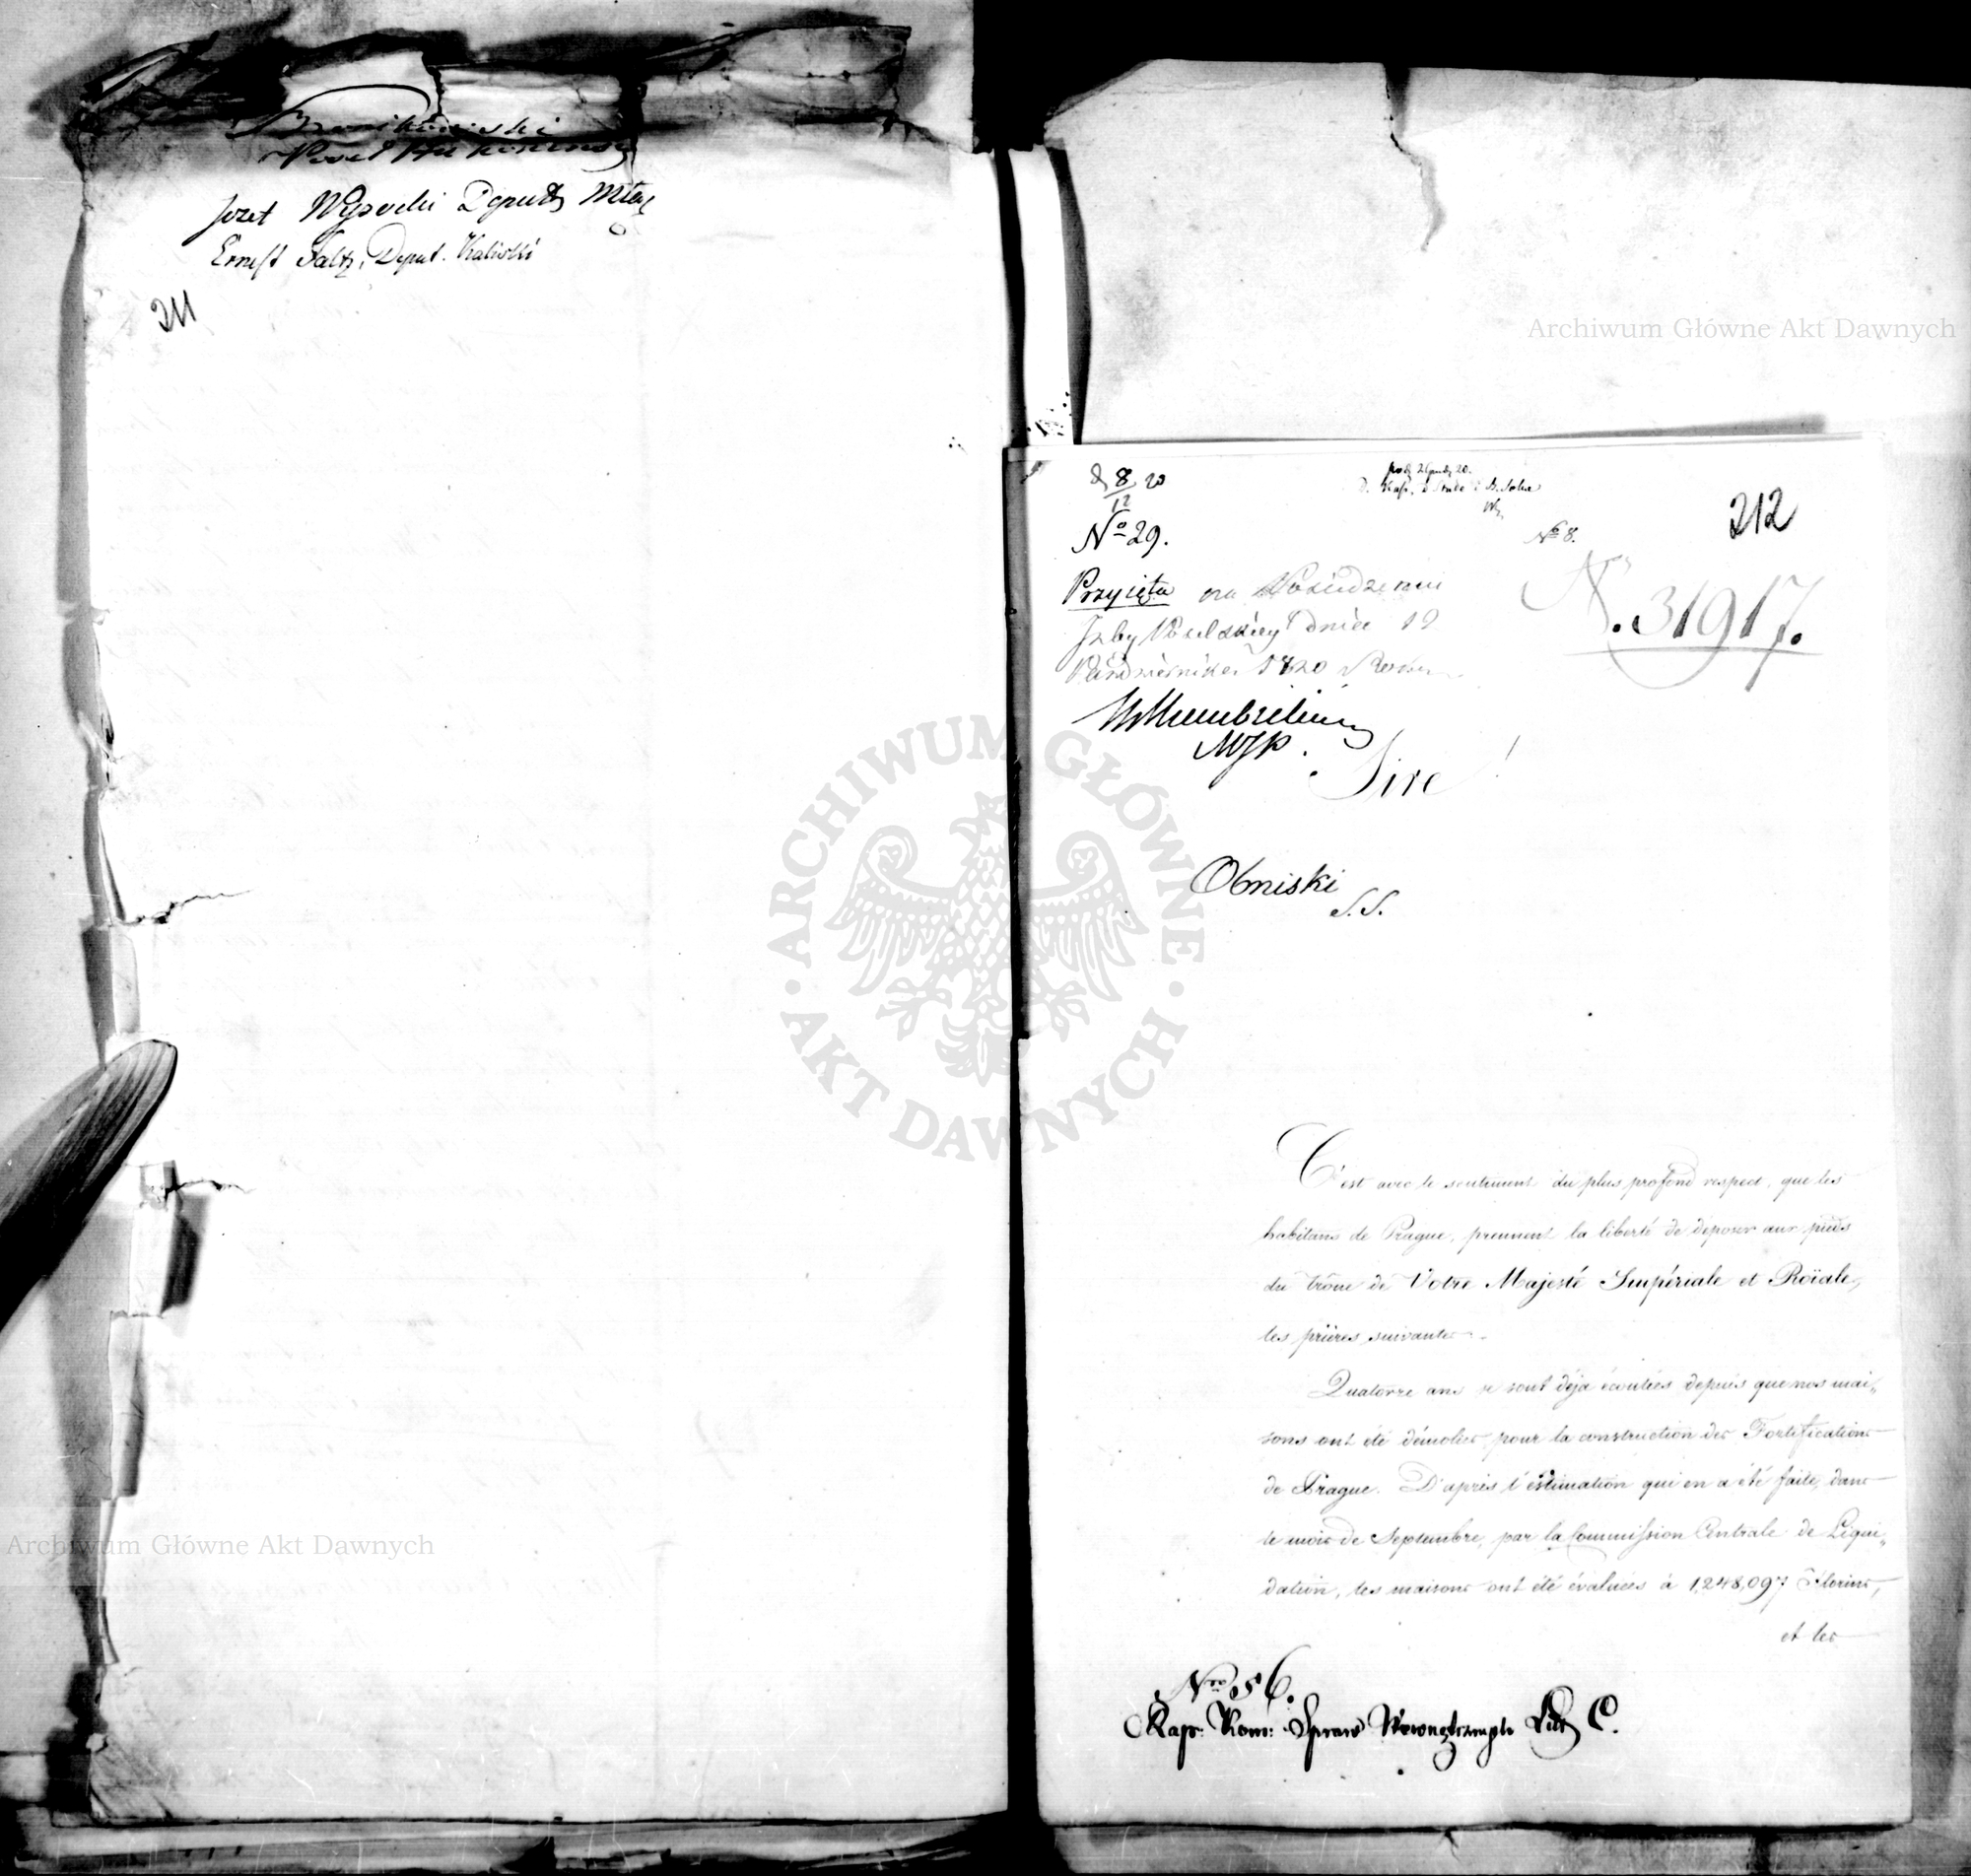 Józef Wysocki Deputy
Ernest Saltz, Deput. Kaliski
211
8/12 20
No 29.
Przyięta na Posiedzeniu
Izby Poselskiey dnia 19
Października 1820 Roku
MJP.
Obniski
S.S.
No 8.
212
N. 31917.
Sire!
C'est avec le sentiment du plus profond respect, que les
habitans de Prague, prennent la liberté de déposer aux pieds
du trône de Votre Majesté Impériale et Roïale,
les prières suivantes.
Quatorze ans se sont déjà écoulées depuis que nos mai„
sons ont été démolies, pour la construction des Fortifications
de Prague. D'après l'éstimation qui en a été faite, dans
le mois de Septembre, par la Commission Centrale de Liqui„
dation, les maisons ont été évaluées à 1,248,097 Florins,
et les
Nro 56.
Kap: Kom: Spraw Wewnętrznych Lit C.
Archiwum Główne Akt Dawnych
ARCHIWUM GŁÓWNE AKT DAWNYCH
Archiwum Główne Akt Dawnych